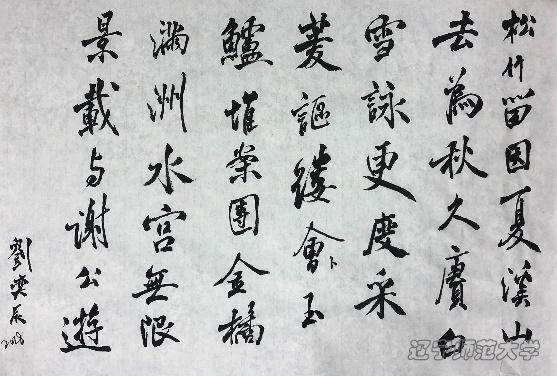 松竹留因夏溪山
去為秋久賡白
雪詠更度采
菱謳縷會玉
鱸堆案團金橘
滿洲水宮無限
景載与謝公遊
劉奕辰
辽宁师范大学